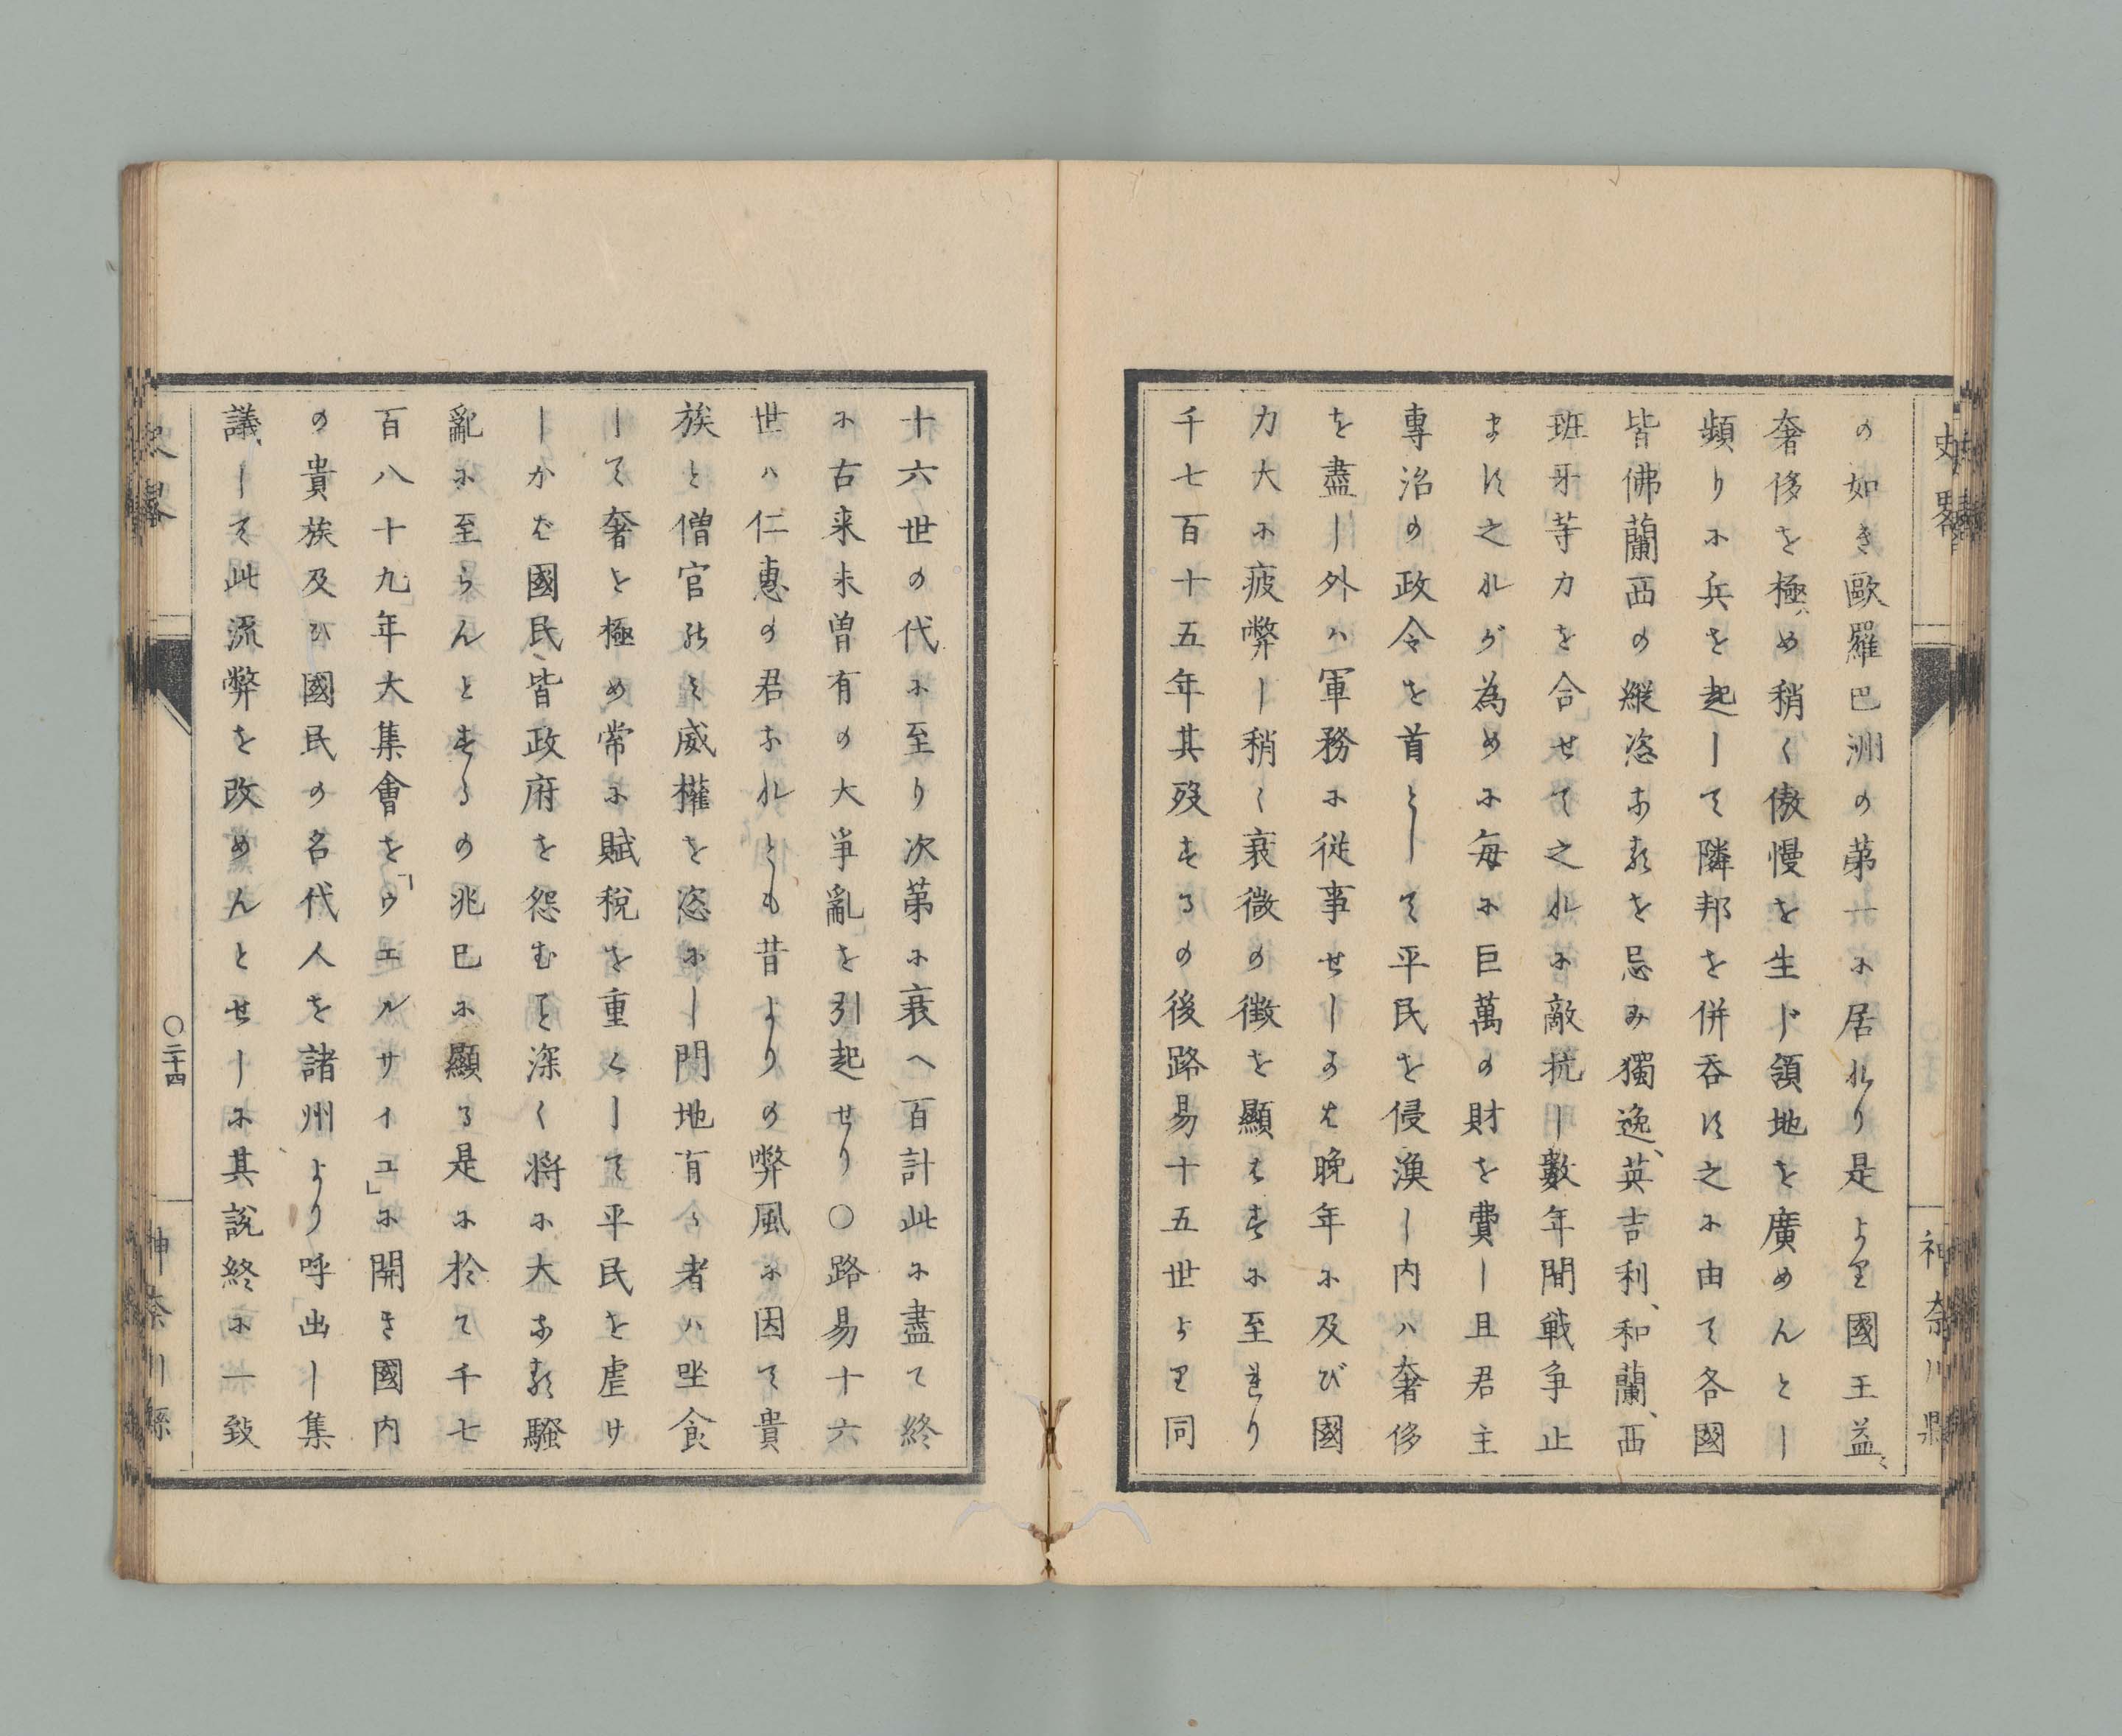 史畧
神奈川縣
の如き歐羅巴洲の第一に居れり是より國王益〻
奢侈を極め稍く傲慢を生じ領地を廣めんとし
頻りに兵を起して隣邦を併呑す之に由て各國
皆佛蘭西の縱恣なるを忌み獨逸、英吉利、和蘭、西
班牙等力を合せて之れに敵抗し數年間戰争止
ます之れが為めに毎に巨萬の財を費し且君主
專治の政令を首として平民を侵漁し内ハ奢侈
を盡し外ハ軍務に從事せしかば晩年に及び國
力大に疲弊し稍〻衰微の徴を顯はすに至れり
千七百十五年其歿するの後路易十五世より同
十六世の代に至り次第に衰へ百計此に盡て終
に古来未曽有の大爭亂を引起せり○路易十六
世ハ仁惠の君なれとも昔よりの弊風に因て貴
族と僧官のミ威權を恣にし門地有る者ハ坐食
して奢を極め常に賦税を重くして平民を虐け
しかば國民皆政府を怨むこと深く将に大なる騷
亂に至らんとするの兆已に顯る是に於て千七
百八十九年大集會を「ウエルサイユ」に開き國内
の貴族及び國民の名代人を諸州より呼出し集
議して此流弊を改めんとせしに其説終に一致
史畧
○二十四
神奈川縣